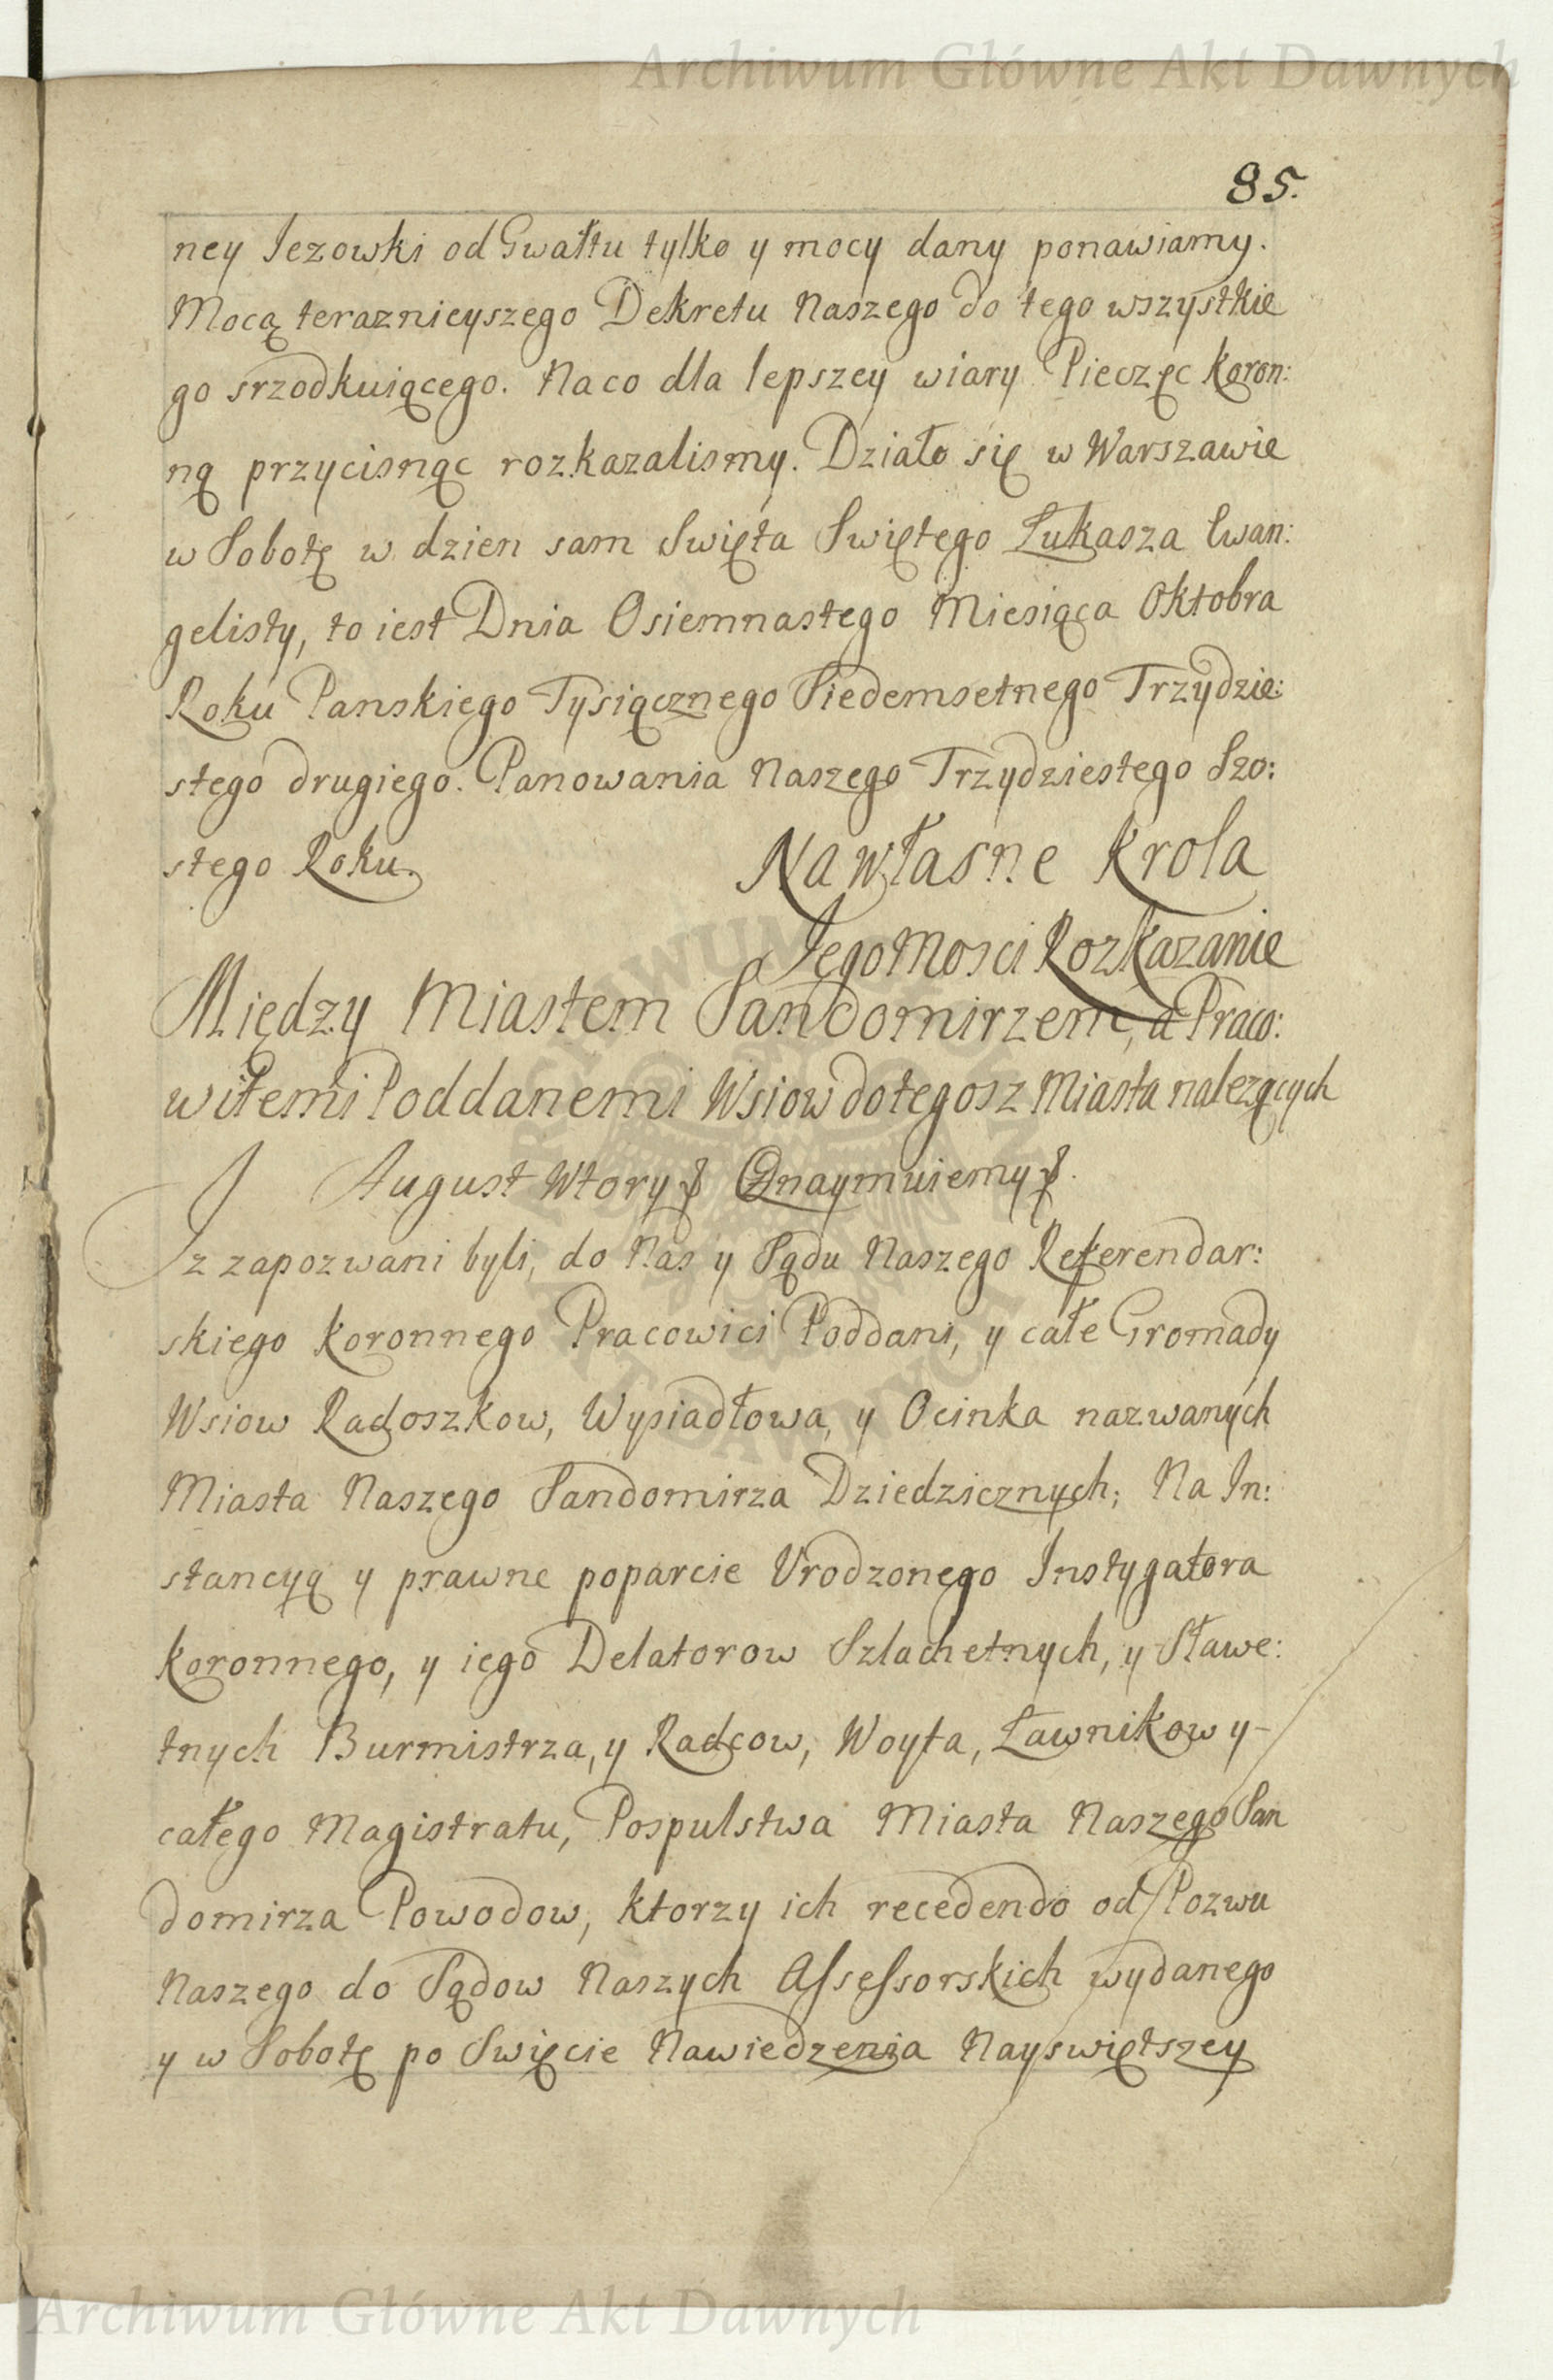 Archiwum Główne Akt Dawnych
85.
ney Jezowki od Gwałtu tylko y mocy dany ponawiamy.
Mocą teraznieyszego Dekretu Naszego do tego wszystkie
go srzodkuiącego. Na co dla lepszey wiary Pieczęc Koron:
ną przycisnąc rozkazalismy. Działo się w Warszawie
w Sobotę w dzien sam Swięta Swiętego Łukasza Ewan:
gelisty, to iest Dnia Osiemnastego Miesiąca Oktobra
Roku Panskiego Tysiącznego Siedemsetnego Trzydzie:
stego drugiego. Panowania Naszego Trzydziestego Szo:
stego Roku.
Na własne Krola
Jego Mosci Rozkazanie
Między Miastem Sandomirzem, a Praco:
witemi Poddanemi Wsiow do tegosz Miasta nalezących
August Wtory Oznaymuiemy
Iz zapozwani byli, do Nas y Sądu Naszego Referendar:
skiego Koronnego Pracowici Poddani, y całe Gromady
Wsiow Radoszkow, Wysiadłowa, y Ocinka nazwanych
Miasta Naszego Sandomirza Dziedzicznych; Na In:
stancyą y prawne poparcie Urodzonego Instygatora
Koronnego, y iego Delatorow Szlachetnych, y Sławe:
tnych Burmistrza, y Radcow, Woyta, Ławnikow y-
całego Magistratu, Pospulstwa Miasta Naszego San
domirza Powodow, ktorzy ich recedendo od Pozwu
Naszego do Sądow Naszych Assessorskich wydanego
y w Sobotę po Swięcie Nawiedzenia Nayswiętszey
Archiwum Główne Akt Dawnych